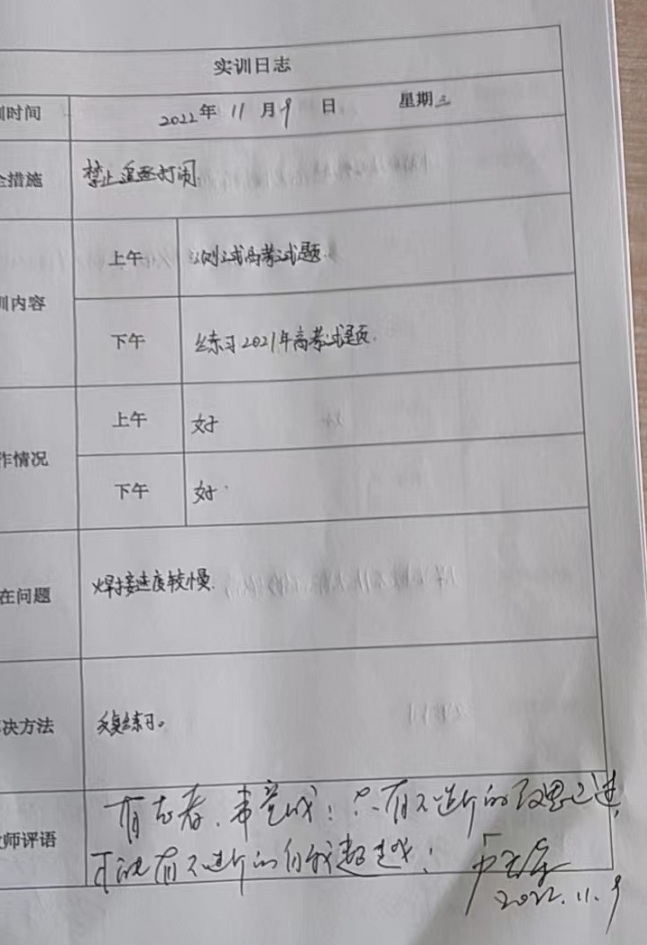 实训日志
训时间 2022年 11 月 9 日 星期三
全措施 禁止追逐打闹
训内容 上午 测试高考试题
下午 练习2021年高考试题.
作情况 上午 好
下午 好
在问题 焊接速度较慢.
决方法 反复练习。
教师评语 有志者,事竟成!只有不断的反思
才能有不断的自我超越!
2022.11.9